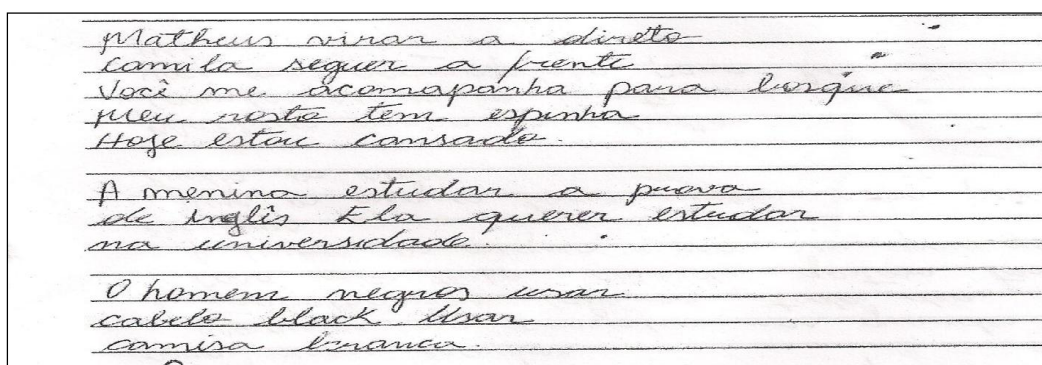 Matheus virar a direto
Camila seguer a frente
Você me acomapanha para bosque
Meu rosto tem espinha
Hoje estou cansado.
A menina estudar a prova
de inglês Ela querer estudar
na universidade.
O homem negros usar
cabelo black. Usar
camisa branca.